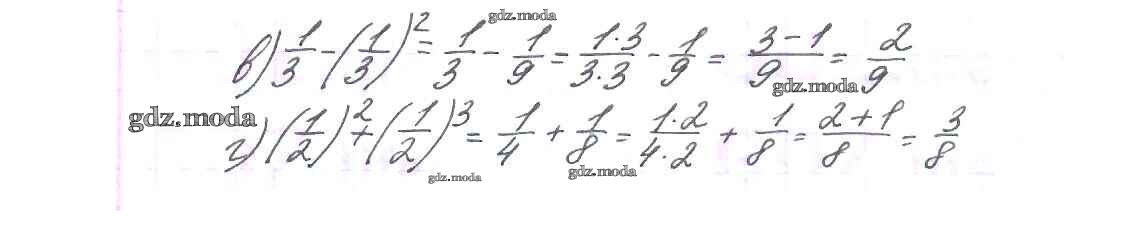 gdz.moda
в) 1/3 - (1/3)² = 1/3 - 1/9 = 1·3/3·3 - 1/9 = 3-1/9 = 2/9
gdz.moda
gdz.moda
г) (1/2)² + (1/2)³ = 1/4 + 1/8 = 1·2/4·2 + 1/8 = 2+1/8 = 3/8
gdz.moda
gdz.moda